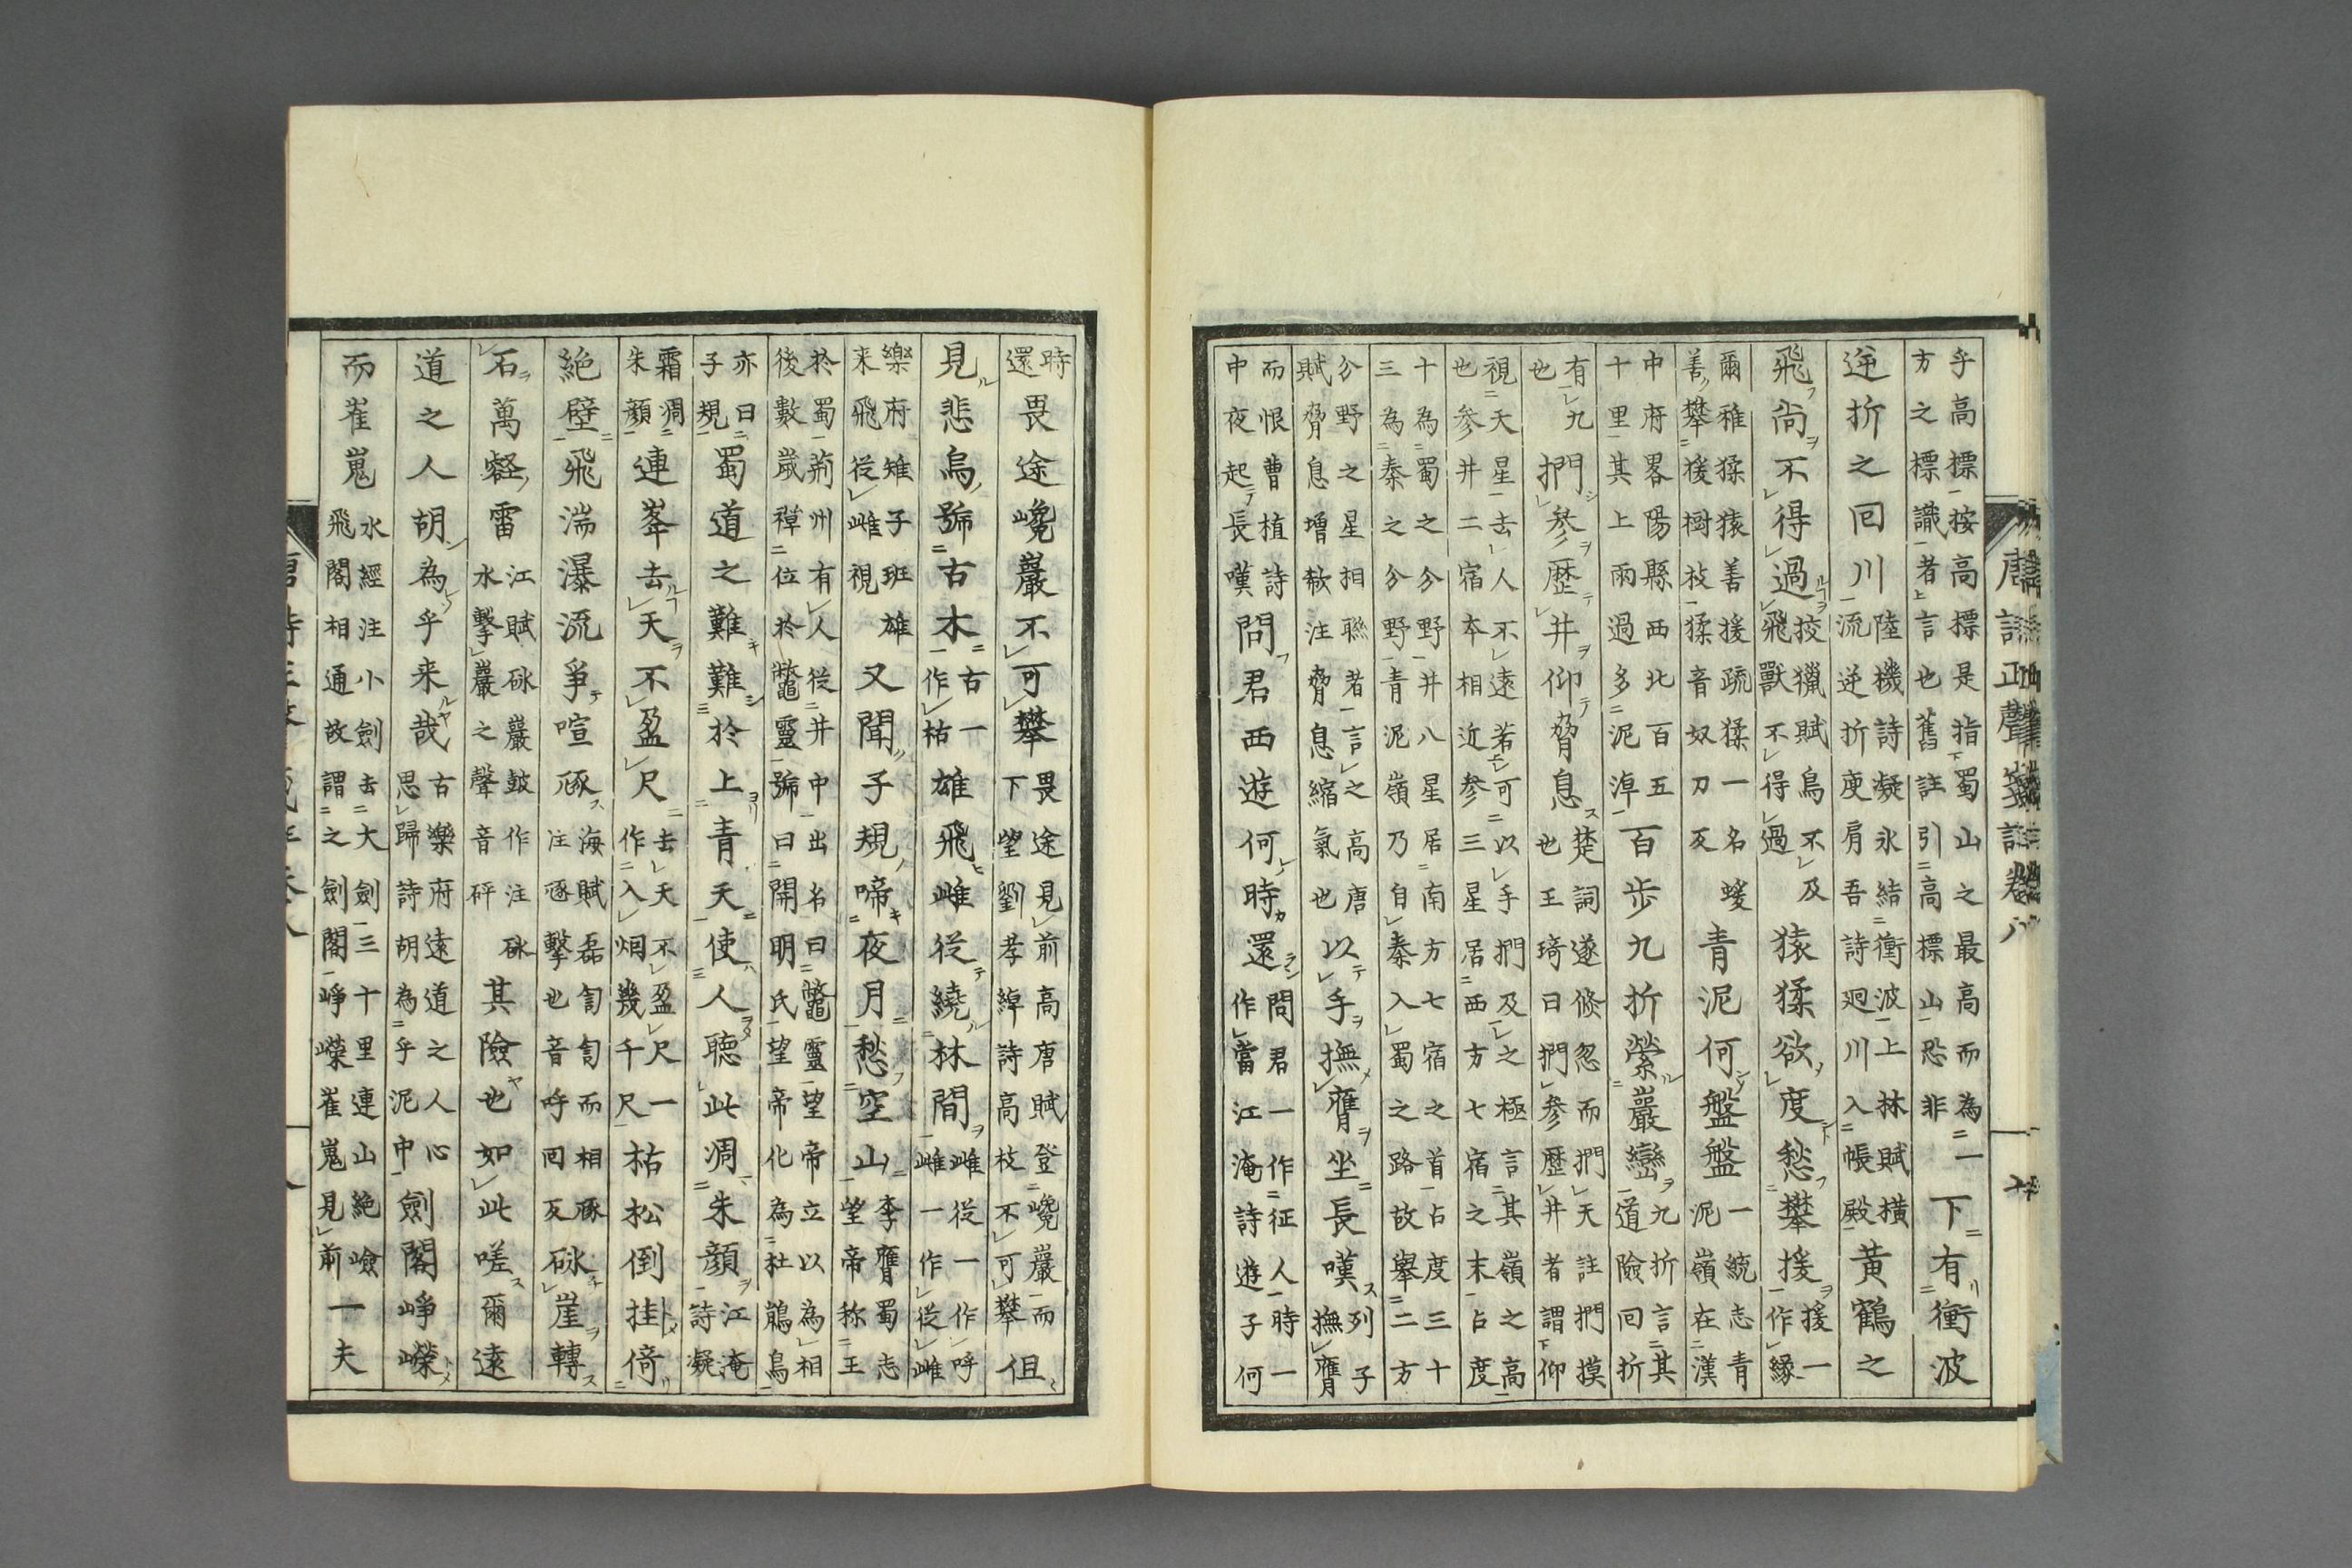 唐詩正聲箋註卷八
乎高標按高標是指蜀山之最高而為一
方之標識者言也舊註引高標山恐非
下有衝波
逆折之回川
陸機詩凝氷結衝波上林賦横
流逆折庾肩吾詩廻川入帳殿
黄鶴之
飛尚不得過
挍獵賦鳥不及
飛獸不得過
猿猱欲度愁攀援
援一
作縁
爾雅猱猿善援疏猱一名蝯
善攀援樹枝猱音奴刀反
青泥何盤盤
一統志青
泥嶺在漢
中府畧陽縣西北百五
十里其上雨過多泥淖
百歩九折縈巖巒
九折言其
道險回折
有九
也
捫参歴井仰脅息
楚詞遂倏忽而捫天註捫摸
也王琦曰捫参歴井者謂仰
視天星去人不遠若可以手捫及之極言其嶺之高
也参井二宿本相近参三星居西方七宿之末占度
十為蜀之分野井八星居南方七宿之首占度三十
三為秦之分野青泥嶺乃自秦入蜀之路故舉二方
分野之星相聯者言之高唐
賦脅息増欷注脅息縮氣也
以手撫膺坐長嘆
列子
撫膺
而恨曹植詩
中夜起長嘆
問君西遊何時還
問君一作征人時一
作當江淹詩遊子何
時
還
畏途巉巖不可攀
畏途見前高唐賦登巉巖而
下望劉孝綽詩高枝不可攀
但
見悲鳥號古木
古一
作枯
雄飛雌從繞林間
雌從一作呼
雌一作從雌
樂府雉子班雄
来飛從雌視
又聞子規啼夜月愁空山
李膺蜀志
望帝称王
於蜀荊州有人從井中出名曰鼈靈望帝立以為相
後數歳禪位於鼈靈號曰開明氏望帝化為杜鵑鳥
亦曰
子規
蜀道之難難於上青天使人聽此凋朱顔
江淹
詩凝
霜凋
朱顔
連峯去天不盈尺
去天不盈尺一
作入烟幾千尺
枯松倒挂倚
絶壁飛湍瀑流爭喧豗
海賦磊訇訇而相豗
注豗擊也音呼回反
砯崖轉
石萬壑雷
江賦砯巖鼓作注砯
水擊巖之聲音砰
其險也如此嗟爾遠
道之人胡為乎来哉
古樂府遠道之人心
思歸詩胡為乎泥中
劍閣崢嶸
而崔嵬
水經注小劍去大劍三十里連山絶嶮
飛閣相通故謂之劍閣崢嶸崔嵬見前
一夫